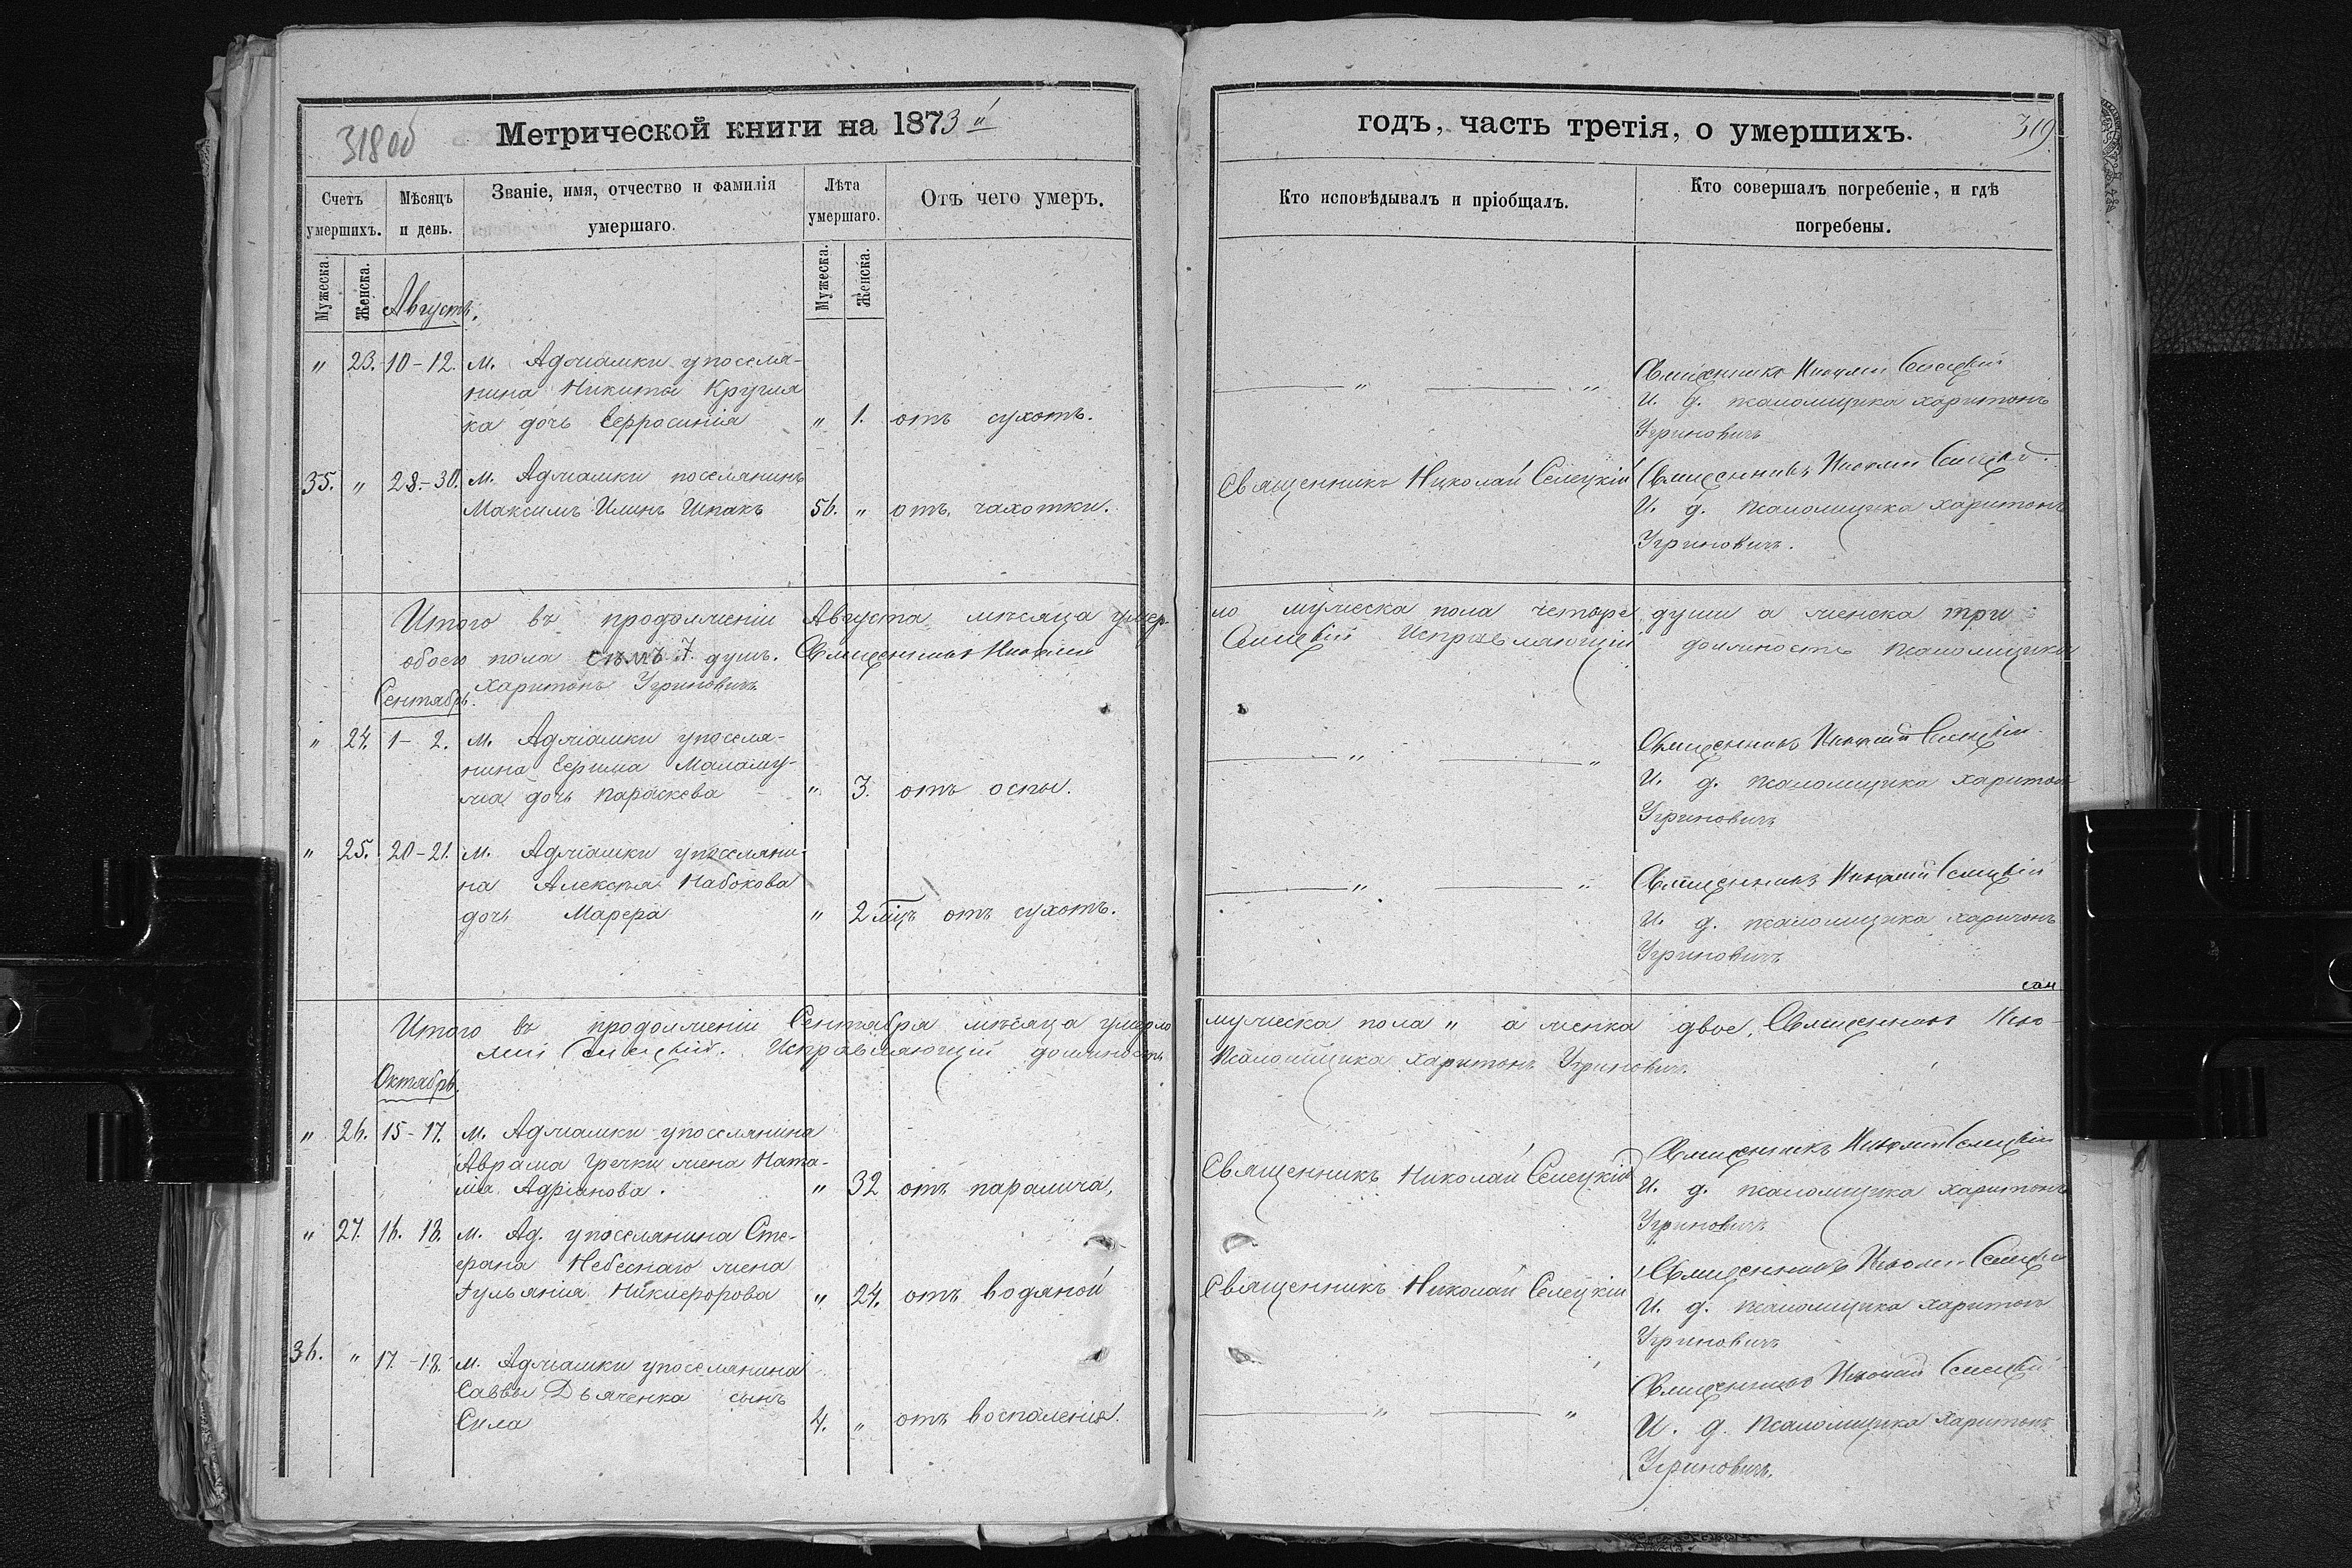 318об
Метрической книги на 1873й
Счетъ умершихъ.
Мужеска.
Женска.
Мѣсяцъ и день.
Званіе, имя, отчество и фамилія умершаго.
Лѣта умершаго.
Мужеска.
Женска.
Отъ чего умеръ.
Августъ.
" 23. 10-12. м. Аджамки у поселя-
нина Никиты Кругля
ка дочь Ефросинія " 1. отъ сухотъ.
35. " 28-30. м. Аджамки поселянинъ
Максимъ Илинъ Шпакъ 56. " отъ чахотки.
Итого въ продолженіи Августа мѣсяца умер-
обоего пола семъ 7 душъ. Священникъ Николай
Харитонъ Угриновичъ
Сентябрь.
" 24. 1-2. м. Аджамки у поселя-
нина Ефима Маламу-
жа дочь Параскева " 3. отъ оспы.
" 25. 20-21. м. Аджамки у поселяни-
на Алексѣя Набокова
дочь Марфа " 2 мѣц отъ сухотъ.
Итого въ продолженіи Сентября мѣсяца умерло
лай Селецкій. Исправляющій должность
Октябрь.
" 26. 15-17. м. Аджамки у поселянина
Аврама Гречки жена Ната-
лія Адріанова. " 32 отъ паралича,
" 27. 16. 18. м. Ад. у поселянина Сте-
фана Небеснаго жена
Іульянія Никифорова " 24. отъ водяной
36. " 17.-18. м. Аджамки у поселянина
Саввы Дьяченка сынъ
Сила 4. " отъ воспаленія.
годъ, часть третія, о умершихъ.
319
Кто исповѣдывалъ и пріобщалъ.
Кто совершалъ погребеніе, и гдѣ погребены.
" " Священникъ Николай Селецкій
И. д. псаломщика Харитонъ
Угриновичъ
Священникъ Николай Селецкій Священникъ Николай Селецкій
И. д. псаломщика Харитонъ
Угриновичъ.
ло мужеска пола четыре души а женска три
Селецкій Исправляющій должность псаломщика
" " Священникъ Николай Селецкій
И. д. псаломщика Харитонъ
Угриновичъ
" " Священникъ Николай Селецкій
И. д. псаломщика Харитонъ
Угриновичъ
мужеска пола " а женка двое, Священникъ Нико-
Псаломщика Харитонъ Угриновичъ.
Священникъ Николай Селецкій Священникъ Николай Селецкій
И. д. псаломщика Харитонъ
Угриновичъ
Священникъ Николай Селецкій Священникъ Николай Селецкій
И. д. псаломщика Харитонъ
Угриновичъ
" " Священникъ Николай Селецкій
И. д. Псаломщика Харитонъ
Угриновичъ.